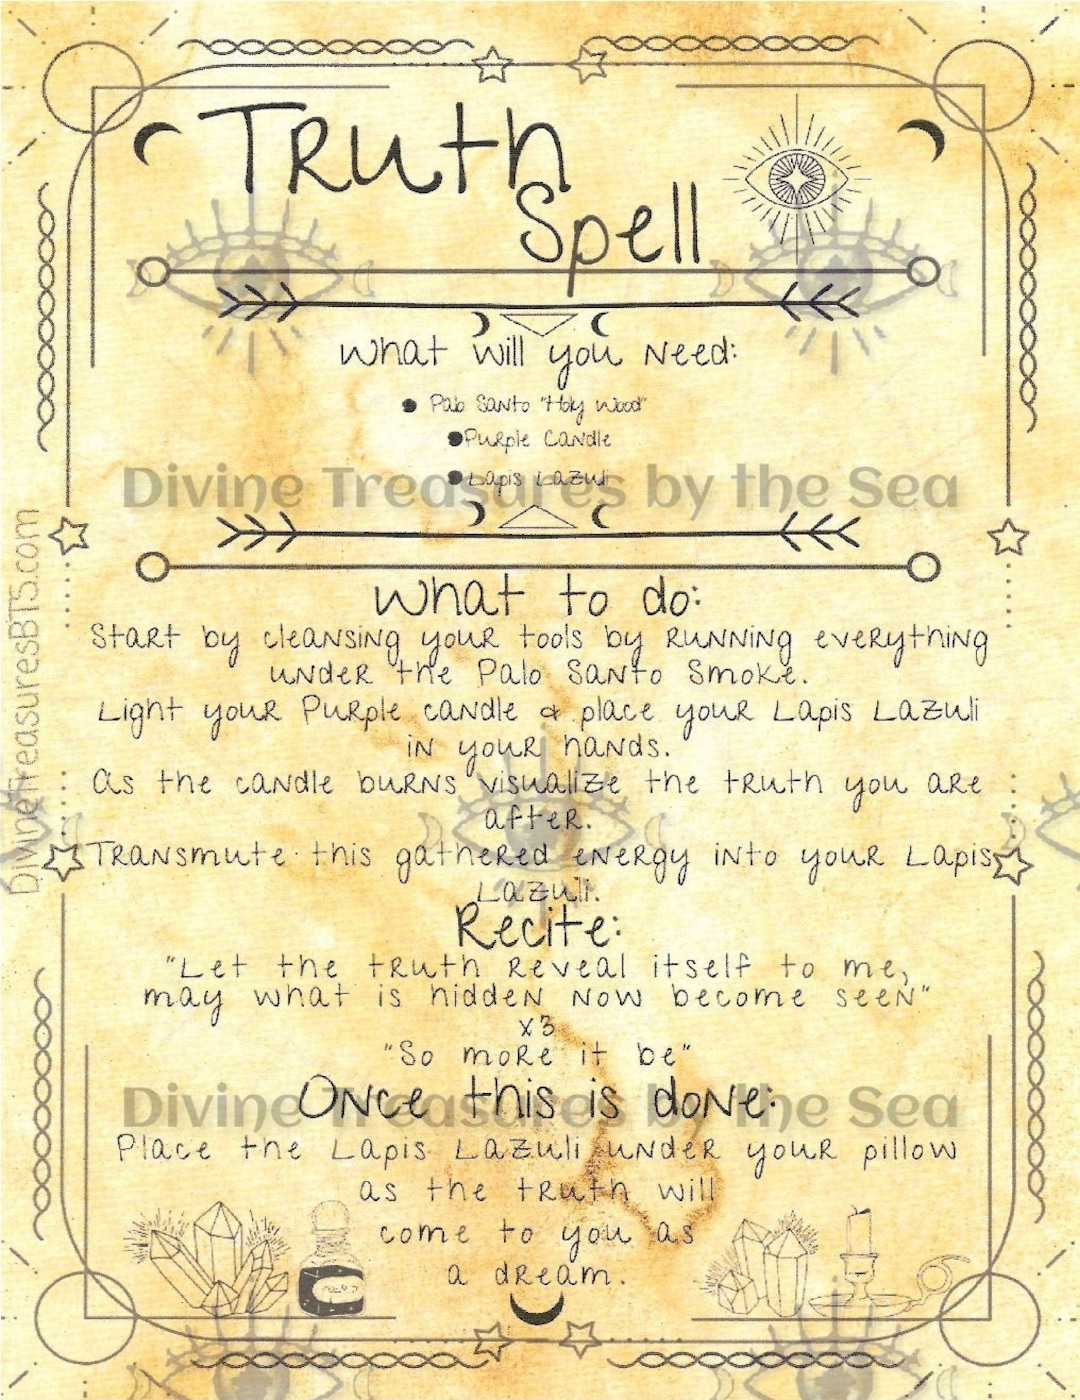 Truth
Spell
What will you Need:
• Palo Santo "Holy Wood"
• Purple Candle
• Lapis Lazuli
Divine Treasures by the Sea
What to do:
Start by cleansing your tools by running everything
under the Palo Santo Smoke.
Light your Purple candle & place your Lapis Lazuli
in your hands.
As the candle burns visualize the truth you are
after.
Transmute this gathered energy into your Lapis
Lazuli.
DivineTreasuresBTS.com
Recite:
"Let the truth reveal itself to me,
may what is hidden now become seen"
x3
"So more it be"
Once this is done:
Divine Treasures by the Sea
Place the Lapis Lazuli under your pillow
as the truth will
come to you as
a dream.